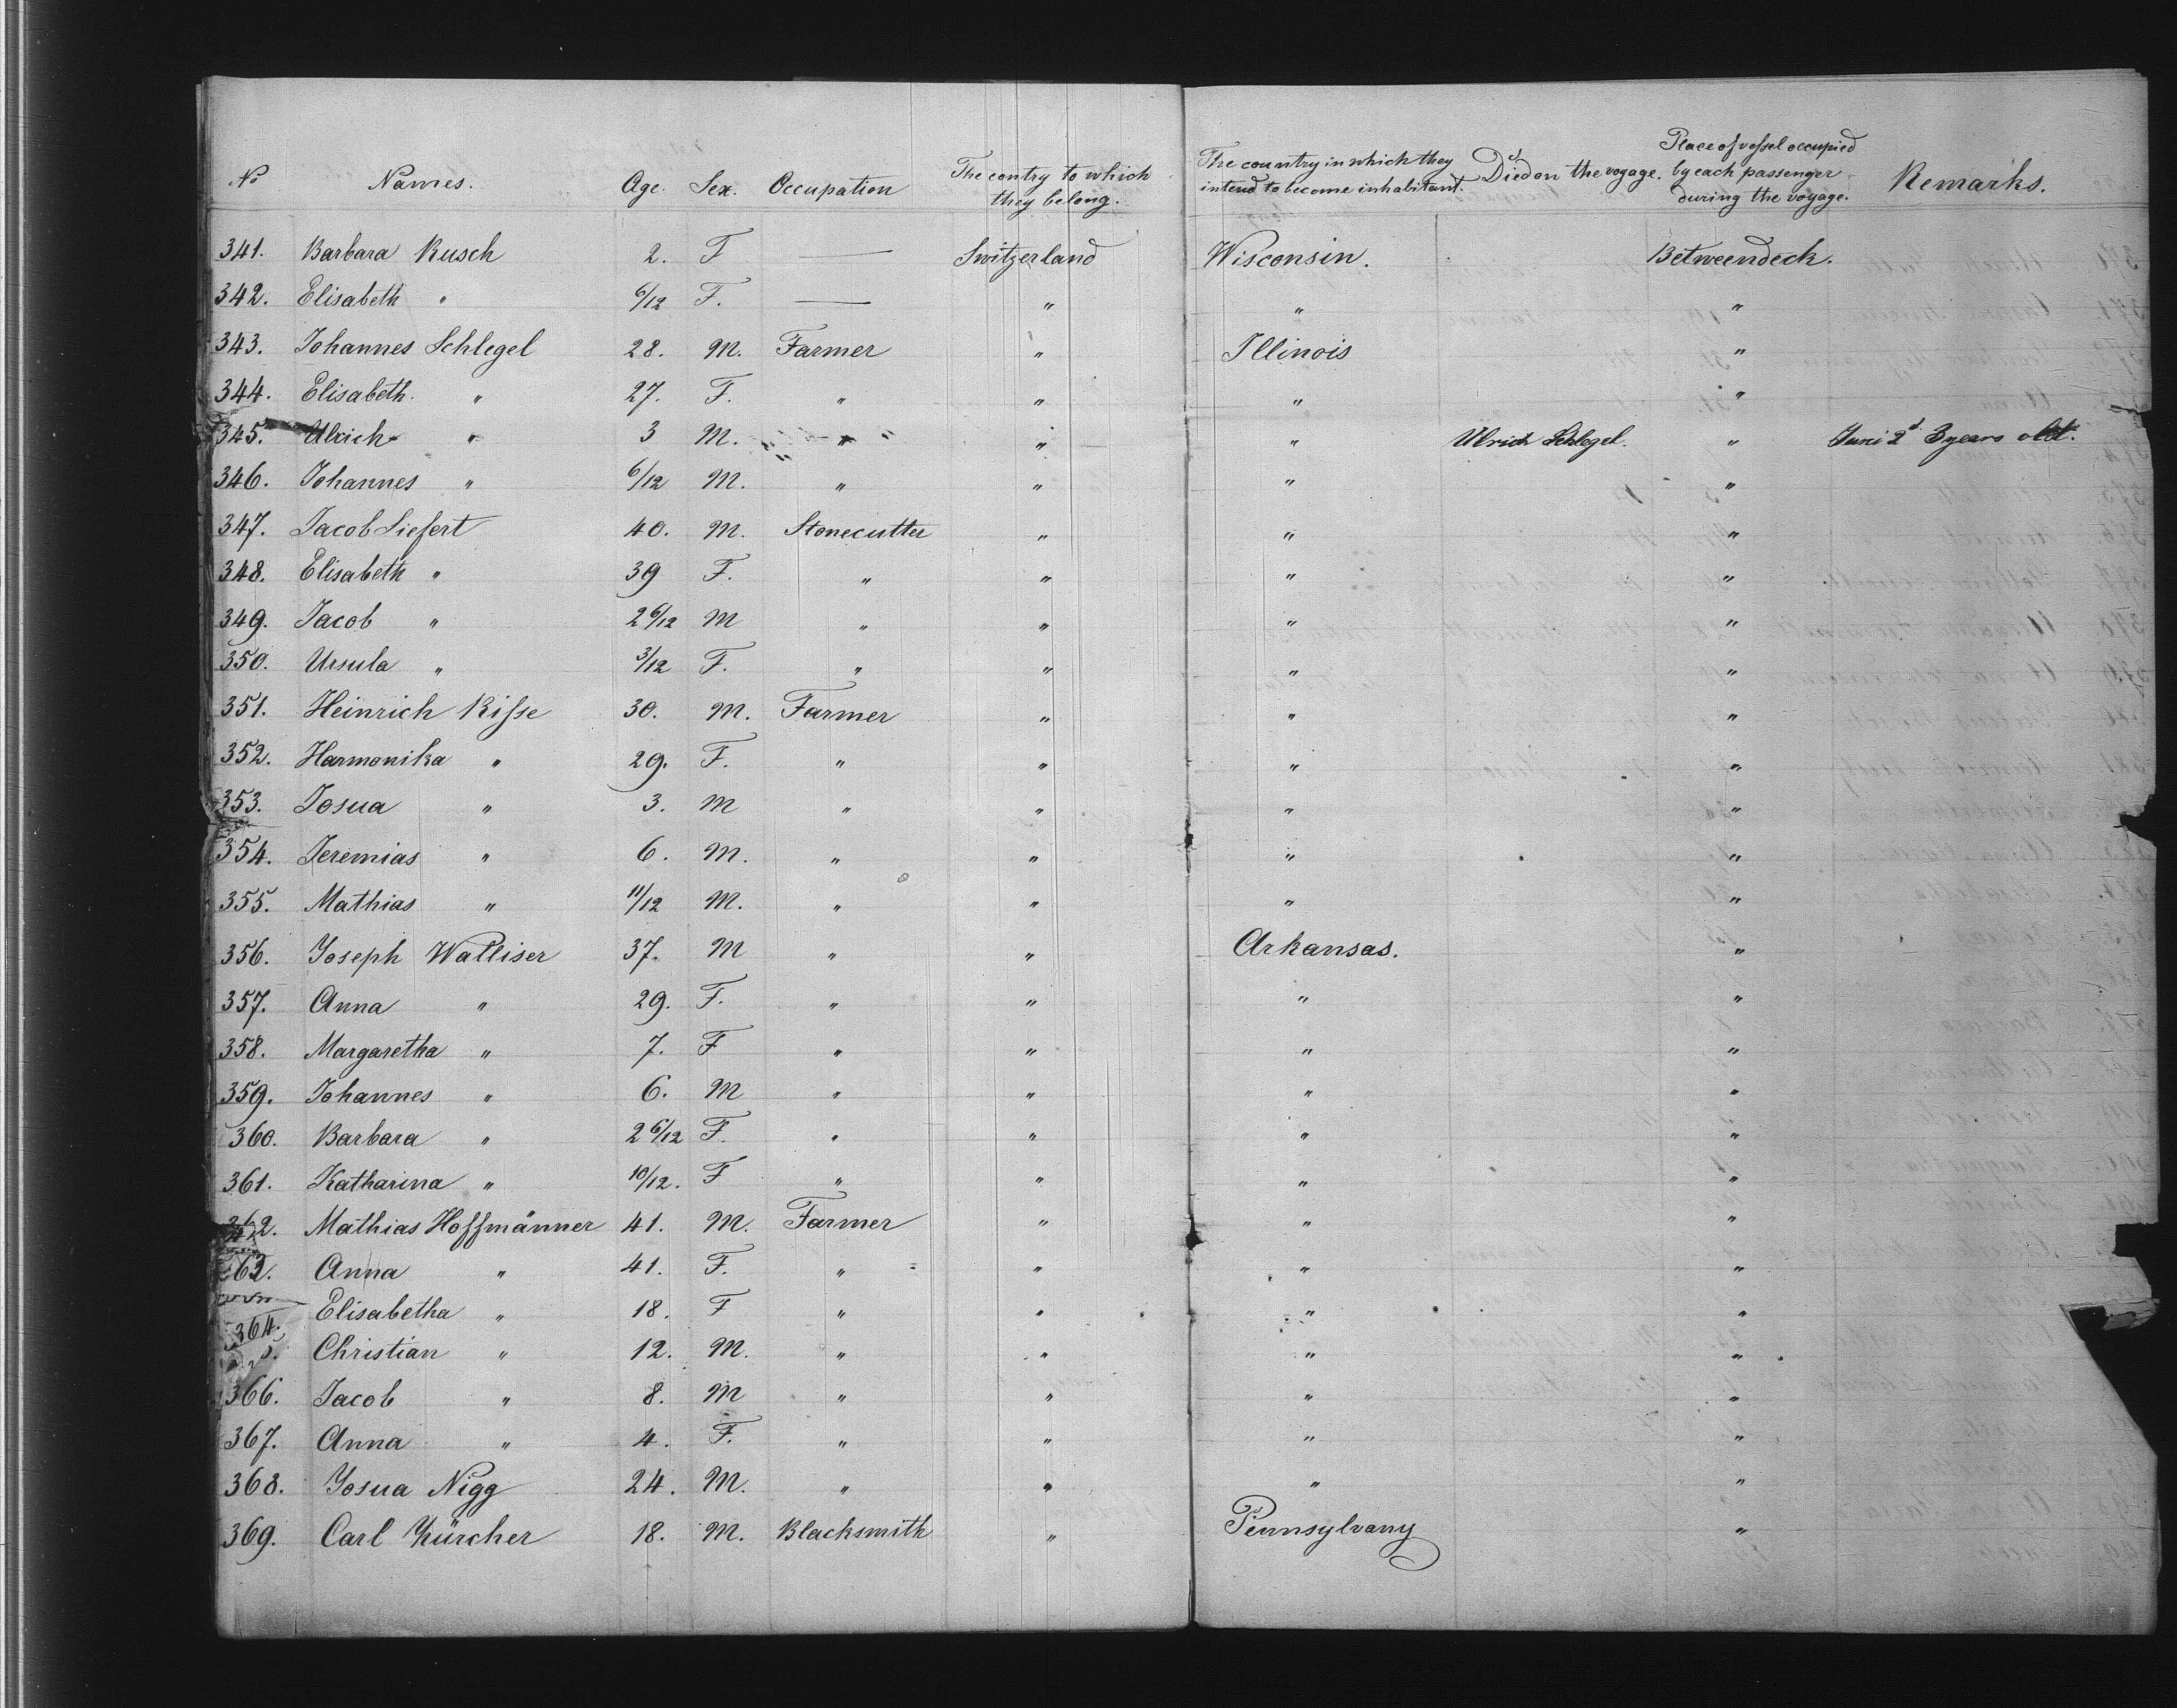 No Names. Age. Sex. Occupation The contry to which they belong. The country in which they intend to become inhabitant. Died on the voyage. Place of vessel occupied by each passenger during the voyage. Remarks.
341. Barbara Rusch 2. F — Switzerland Wisconsin. Betweendeck.
342. Elisabeth " 6/12 F. — " " "
343. Johannes Schlegel 28. M. Farmer " Illinois "
344. Elisabeth. " 27. F. " " " "
345. Ulrich " 3 M. " " " Ulrich Schlegel. " Juni 2d 3 years old.
346. Johannes " 6/12 M. " " " "
347. Jacob Siefert 40. M. Stonecutter " " "
348. Elisabeth " 39 F. " " " "
349. Jacob " 2 6/12 M " " " "
350. Ursula " 3/12 F. " " " "
351. Heinrich Risse 30. M. Farmer " " "
352. Harmonika " 29. F. " " " "
353. Josua " 3. M " " " "
354. Jeremias " 6. M. " " " "
355. Mathias " 11/12 M. " " " "
356. Joseph Walliser 37. M " " Arkansas. "
357. Anna " 29. F. " " " "
358. Margaretha " 7. F " " " "
359. Johannes " 6. M " " " "
360. Barbara " 2 6/12 F. " " " "
361. Katharina " 10/12. F " " " "
362. Mathias Hoffmänner 41. M. Farmer " " "
63. Anna " 41. F. " " " "
364. Elisabetha " 18. F " " " "
5. Christian " 12. M. " " " "
366. Jacob " 8. M " " " "
367. Anna " 4. F. " " " "
368. Josua Nigg 24. M. " " " "
369. Carl Zürcher 18. M. Blacksmith " Pennsylvany "